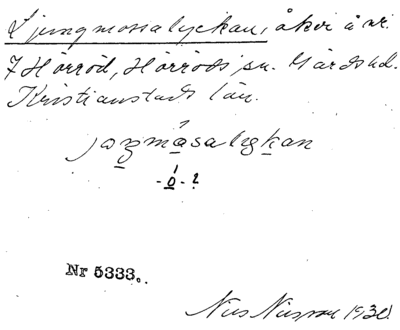 Ljungmossalyckan, åker å nr.
7 Hörröd, Hörröds sn. Gärds hd.
Kristianstads län.
-ó-?
Nr 5333.
Nils Nilsson 1930.